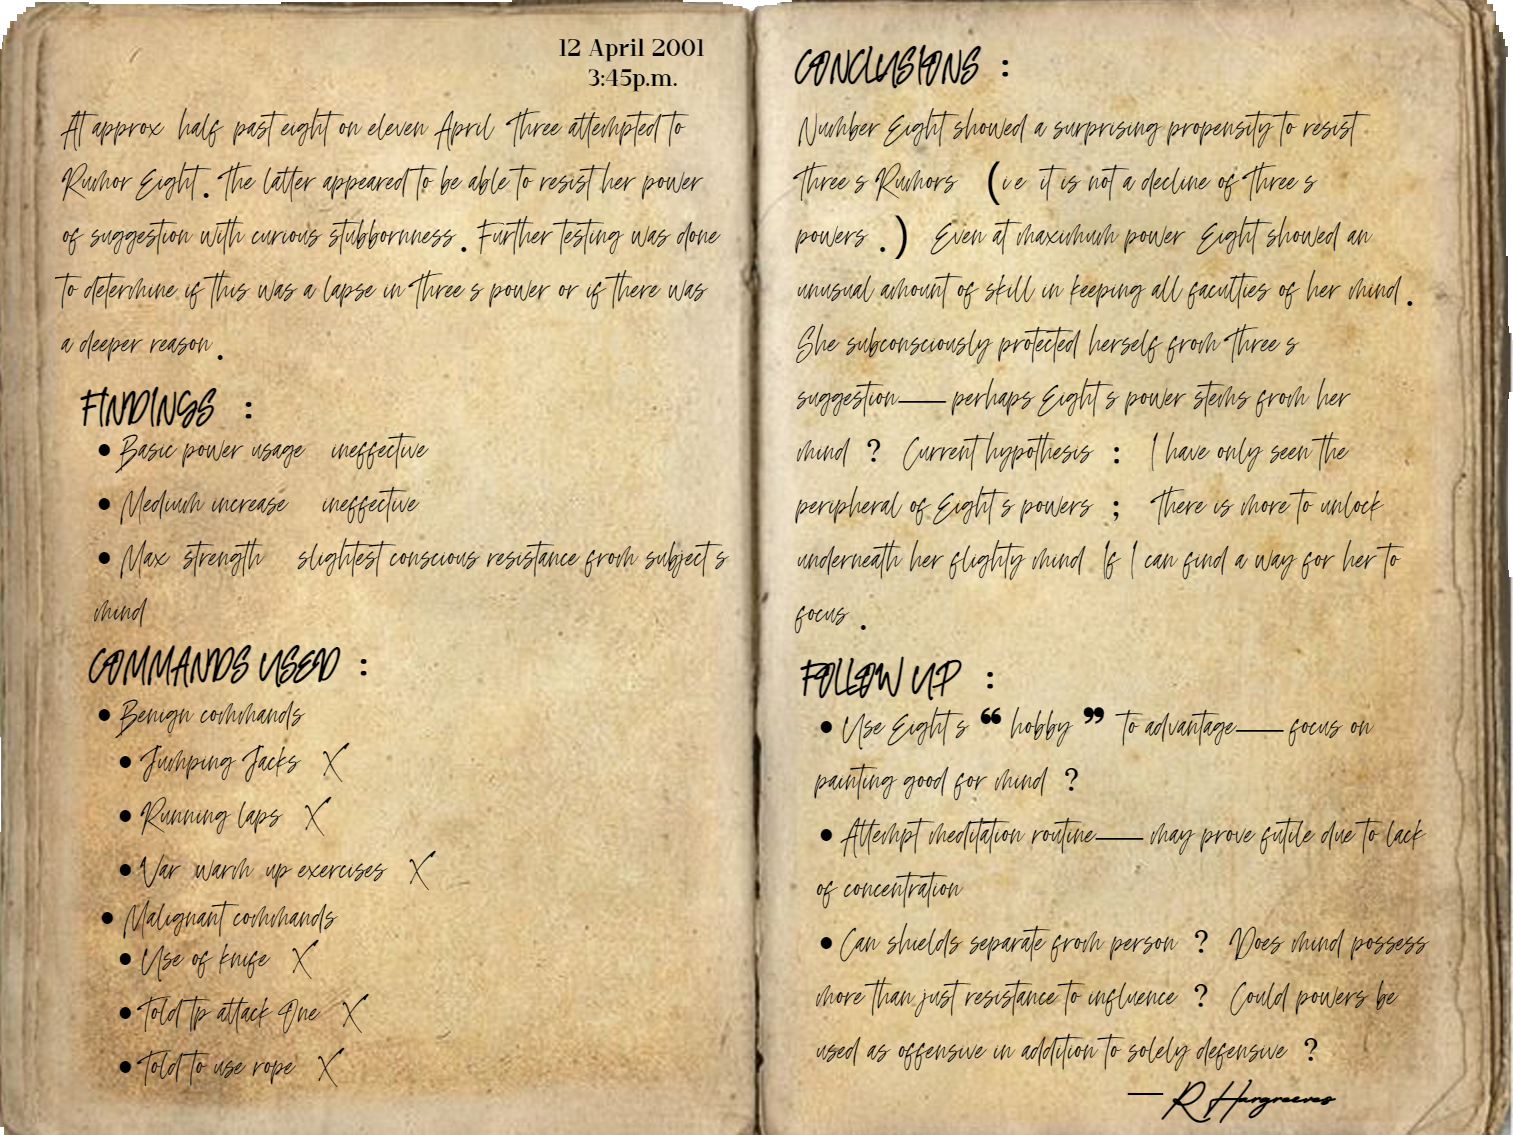 12 April 2001
3:45p.m.
At approx half past eight on eleven April Three attempted to
Rumor Eight. The latter appeared to be able to resist her power
of suggestion with curious stubbornness. Further testing was done
to determine if this was a lapse in Three s power or if there was
a deeper reason.
FINDINGS :
• Basic power usage ineffective
• Medium increase ineffective
• Max strength slightest conscious resistance from subject s
mind
COMMANDS USED :
• Benign commands
• Jumping Jacks X
• Running laps X
• Var warm up exercises X
• Malignant commands
• Use of knife X
• Told tp attack One X
• Told to use rope X
CONCLUSIONS :
Number Eight showed a surprising propensity to resist
Three s Rumors (i e it is not a decline of Three s
powers .) Even at maximum power Eight showed an
unusual amount of skill in keeping all faculties of her mind.
She subconsciously protected herself from Three s
suggestion—perhaps Eight s power stems from her
mind ? Current hypothesis : I have only seen the
peripheral of Eight s powers ; There is more to unlock
underneath her flighty mind If I can find a way for her to
focus.
FOLLOW UP :
• Use Eight s “ hobby ” to advantage—focus on
painting good for mind ?
• Attempt meditation routine—may prove futile due to lack
of concentration
• Can shields separate from person ? Does mind possess
more than just resistance to influence ? Could powers be
used as offensive in addition to solely defensive ?
— R Hargreeves